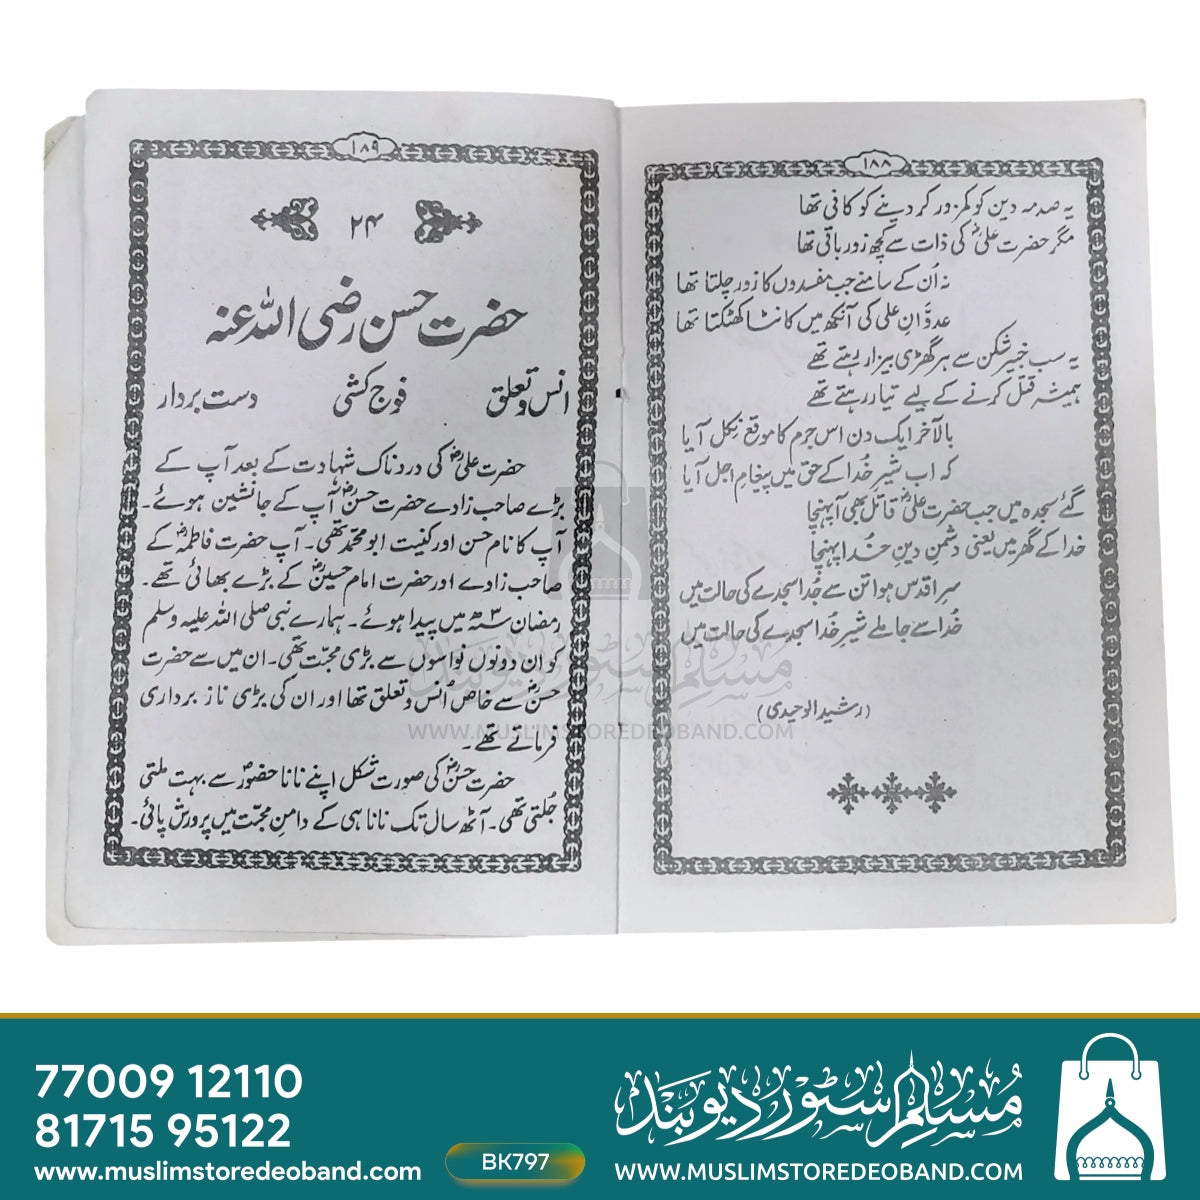 ۱۸۸
یہ صدمہ دین کو کمزور کر دینے کو کافی تھا
مگر حضرت علیؓ کی ذات سے کچھ زور باقی تھا
نہ اُن کے سامنے جب مفسدوں کا زور چلتا تھا
عدوّانِ علی کی آنکھ میں کانٹا کھٹکتا تھا
یہ سب خیبر شکن سے ہر گھڑی بیزار رہتے تھے
ہمیشہ قتل کرنے کے لیے تیار رہتے تھے
بالآخر ایک دن اس جرم کا موقع نِکل آیا
کہ اب شیرِ خُدا کے حق میں پیغامِ اجل آیا
گئے سجدہ میں جب حضرت علیؓ قاتل بھی آپہنچا
خدا کے گھر میں یعنی دشمنِ دینِ خُدا پہنچا
سرِ اقدس ہوا تن سے جُدا سجدے کی حالت میں
خُدا سے جا ملے شیرِ خُدا سجدے کی حالت میں
(رشید الوحیدی)
۱۸۹
۲۴
حضرت حسن رضی اللہ عنہ
انس و تعلق فوج کشی دست بردار
حضرت علیؓ کی دردناک شہادت کے بعد آپ کے
بڑے صاحب زادے حضرت حسنؓ آپ کے جانشین ہوئے۔
آپ کا نام حسن اور کنیت ابو محمد تھی۔ آپ حضرت فاطمہؓ کے
صاحب زادے اور حضرت امام حسینؓ کے بڑے بھائی تھے۔
رمضان ۳ھ میں پیدا ہوئے۔ ہمارے نبی صلی اللہ علیہ وسلم
کو ان دونوں نواسوں سے بڑی محبّت تھی۔ ان میں سے حضرت
حسنؓ سے خاص اُنس و تعلق تھا اور ان کی بڑی ناز برداری
فرماتے تھے۔
حضرت حسنؓ کی صورت شکل اپنے نانا حضورؐ سے بہت ملتی
جُلتی تھی۔ آٹھ سال تک نانا ہی کے دامنِ محبّت میں پرورش پائی۔
مسلم سٹور دیوبند
WWW.MUSLIMSTOREDEOBAND.COM
77009 12110
81715 95122
www.muslimstoredeoband.com
BK797
مسلم سٹور دیوبند
WWW.MUSLIMSTOREDEOBAND.COM